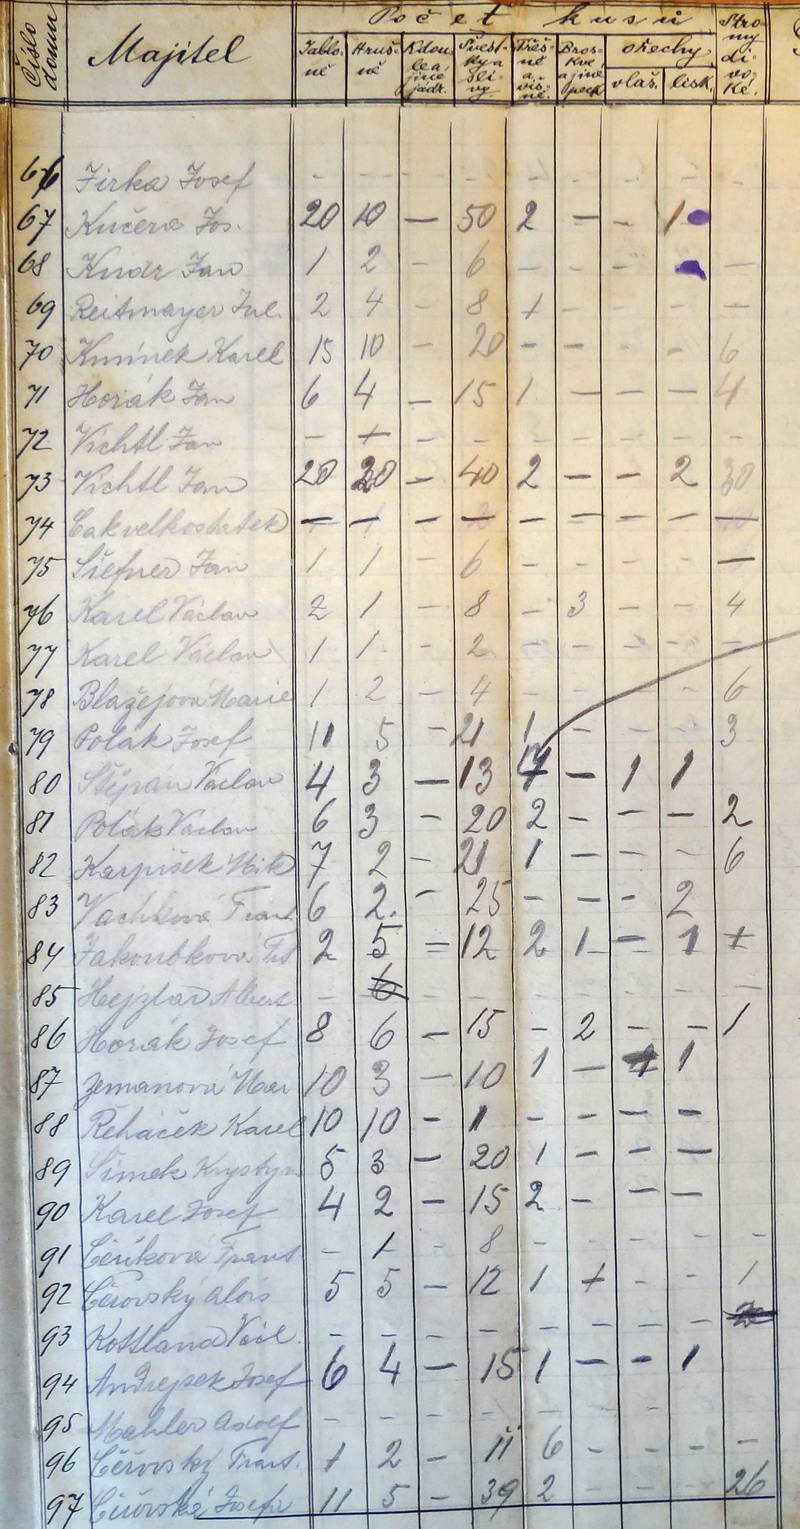 Číslo domu Majitel Počet kusů Stromy divoké.
Jabloně Hrušně Kdoule a jiné jádr. Švestky a slívy Třešně a višně. Broskve, a jiné peck ořechy
vlaš. lísk.
66 Jirka Josef - - - - - - - - -
67 Kučera Jos. 20 10 - 50 2 - - 1
68 Kudr Jan 1 2 - 6 - - - -
69 Reitmayer Jul. 2 4 - 8 + - - - -
70 Kmínek Karel 15 10 - 20 - - - - 6
71 Horák Jan 6 4 - 15 1 - - - 4
72 Vichtl Jan - + - - - - - - -
73 Vichtl Jan 20 30 - 40 2 - - 2 30
74 - - - - - - - - -
75 Šiefner Jan 1 1 - 6 - - - - -
76 Karel Václav 2 1 - 8 - 3 - - 4
77 Karel Václav 1 1 - 2 - - - - -
78 Blažejová Marie 1 2 - 4 - - - - 6
79 Polák Josef 11 5 - 21 1 - - - 3
80 Štěpán Václav 4 3 - 13 - 1 1
81 Polák Václav 6 3 - 20 2 - - - 2
82 Karpíšek 7 2 - 21 1 - - - 6
83 Vachková Frant 6 2. - 25 - - - 2
84 Jakoubková 2 5 - 12 2 1 - 1 +
85 Hejzlar Albert - - - - - - - -
86 Horák Josef 8 6 - 15 - 2 - - 1
87 Zemanová Mar 10 3 - 10 1 - 1 1
88 Řeháček Karel 10 10 - 1 - - - -
89 Šimek Krystyn 5 3 - 20 1 - - -
90 Karel Josef 4 2 - 15 2 - - -
91 Čeříková Frant - 1 - 8 - - - - -
92 Čeřovský Alois 5 5 - 12 1 + - - 1
93 Kottland Václ. - - - - - - - -
94 Andrejsek Josef 6 4 - 15 1 - - 1
95 Mahler Adolf - - - - - - - -
96 Čeřovský Frant. + 2 - 11 6 - - - -
97 Čeřovská Josefa 11 5 - 39 2 - - - 26